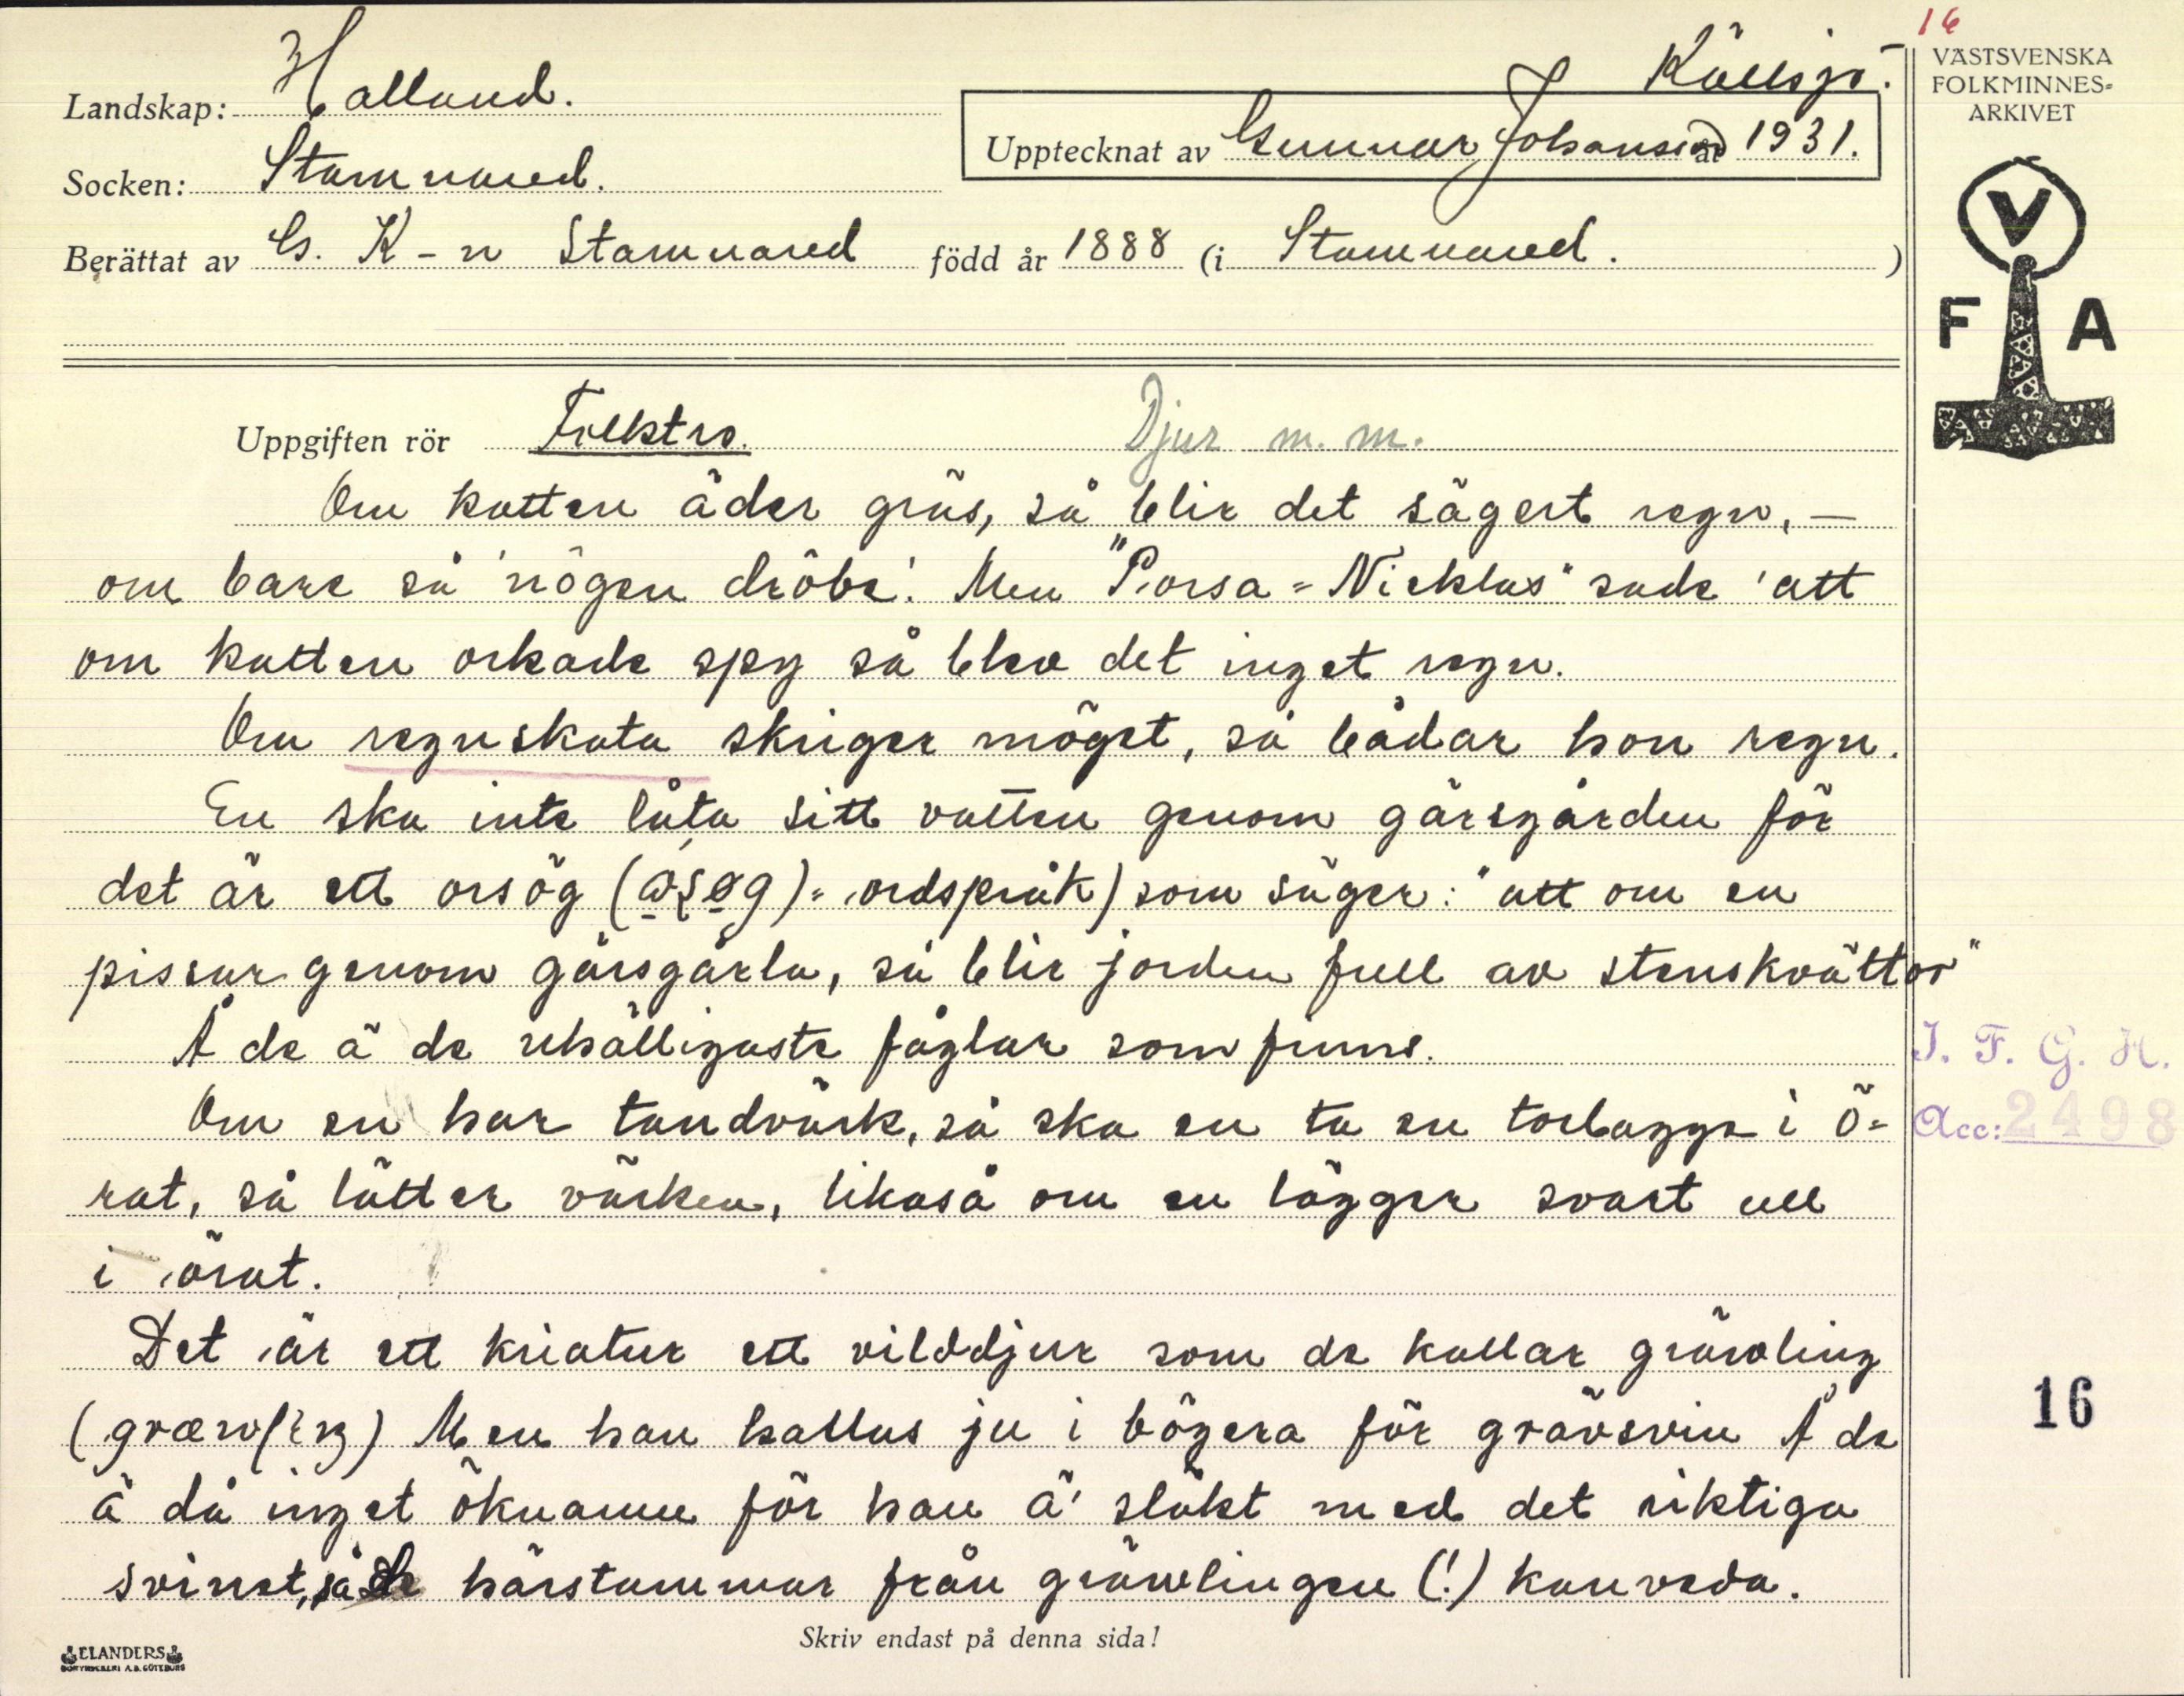 16
VÄSTSVENSKA
FOLKMINNES-
ARKIVET
Landskap: Halland.
Källsjö.
Upptecknat av Gunnar Johansson år 1931.
Socken: Stamnared.
Berättat av G. K-n Stamnared född år 1888 (i Stamnared. )
V
F A
Uppgiften rör Folktro. Djur m. m.
Om katten äder gräs, så blir det sägert regn, —
om bare så 'nögen dröbe'. Men "Porsa-Nicklas" sade 'att
om katten orkade spy så blev det inget regn.
Om regnskata skriger möget, så bådar hon regn.
En ska inte låta sitt vatten genom gärsgården för
det är ett orsög ( = ordspråk) som säger: "att om en
pissar genom gärsgårla, så blir jorden full av stenskvättor"
Å de ä de uhälligaste fåglar som finns.
Om en har tandvärk, så ska en ta en torbagge i ö-
rat, så lätter värken, likaså om en lägger svart ull
i örat.
Det är ett kriatur ett vilddjur som de kallar grävling
Men han kallas ju i bögera för grävsvin Å de
ä då inget öknamn för han ä' släkt med det riktiga
svinet, så de härstammar från gräwlingen (!) kanveda.
I. F. G. H.
Acc: 2498
16
Skriv endast på denna sida!
ELANDERS
BOKTRYCKERI A.B. GÖTEBORG